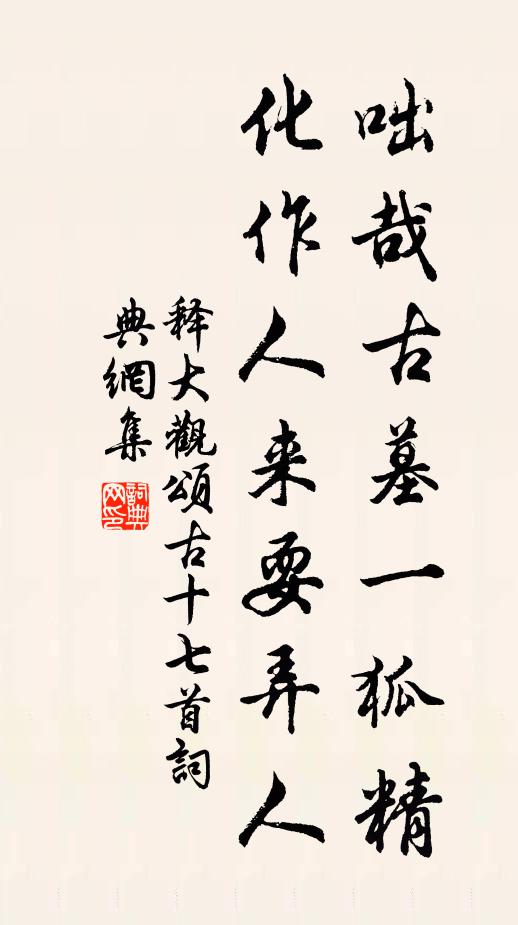 咄哉古墓一狐精
化作人来耍弄人
释大觀頌古十七首詞
典網集
詞典网印